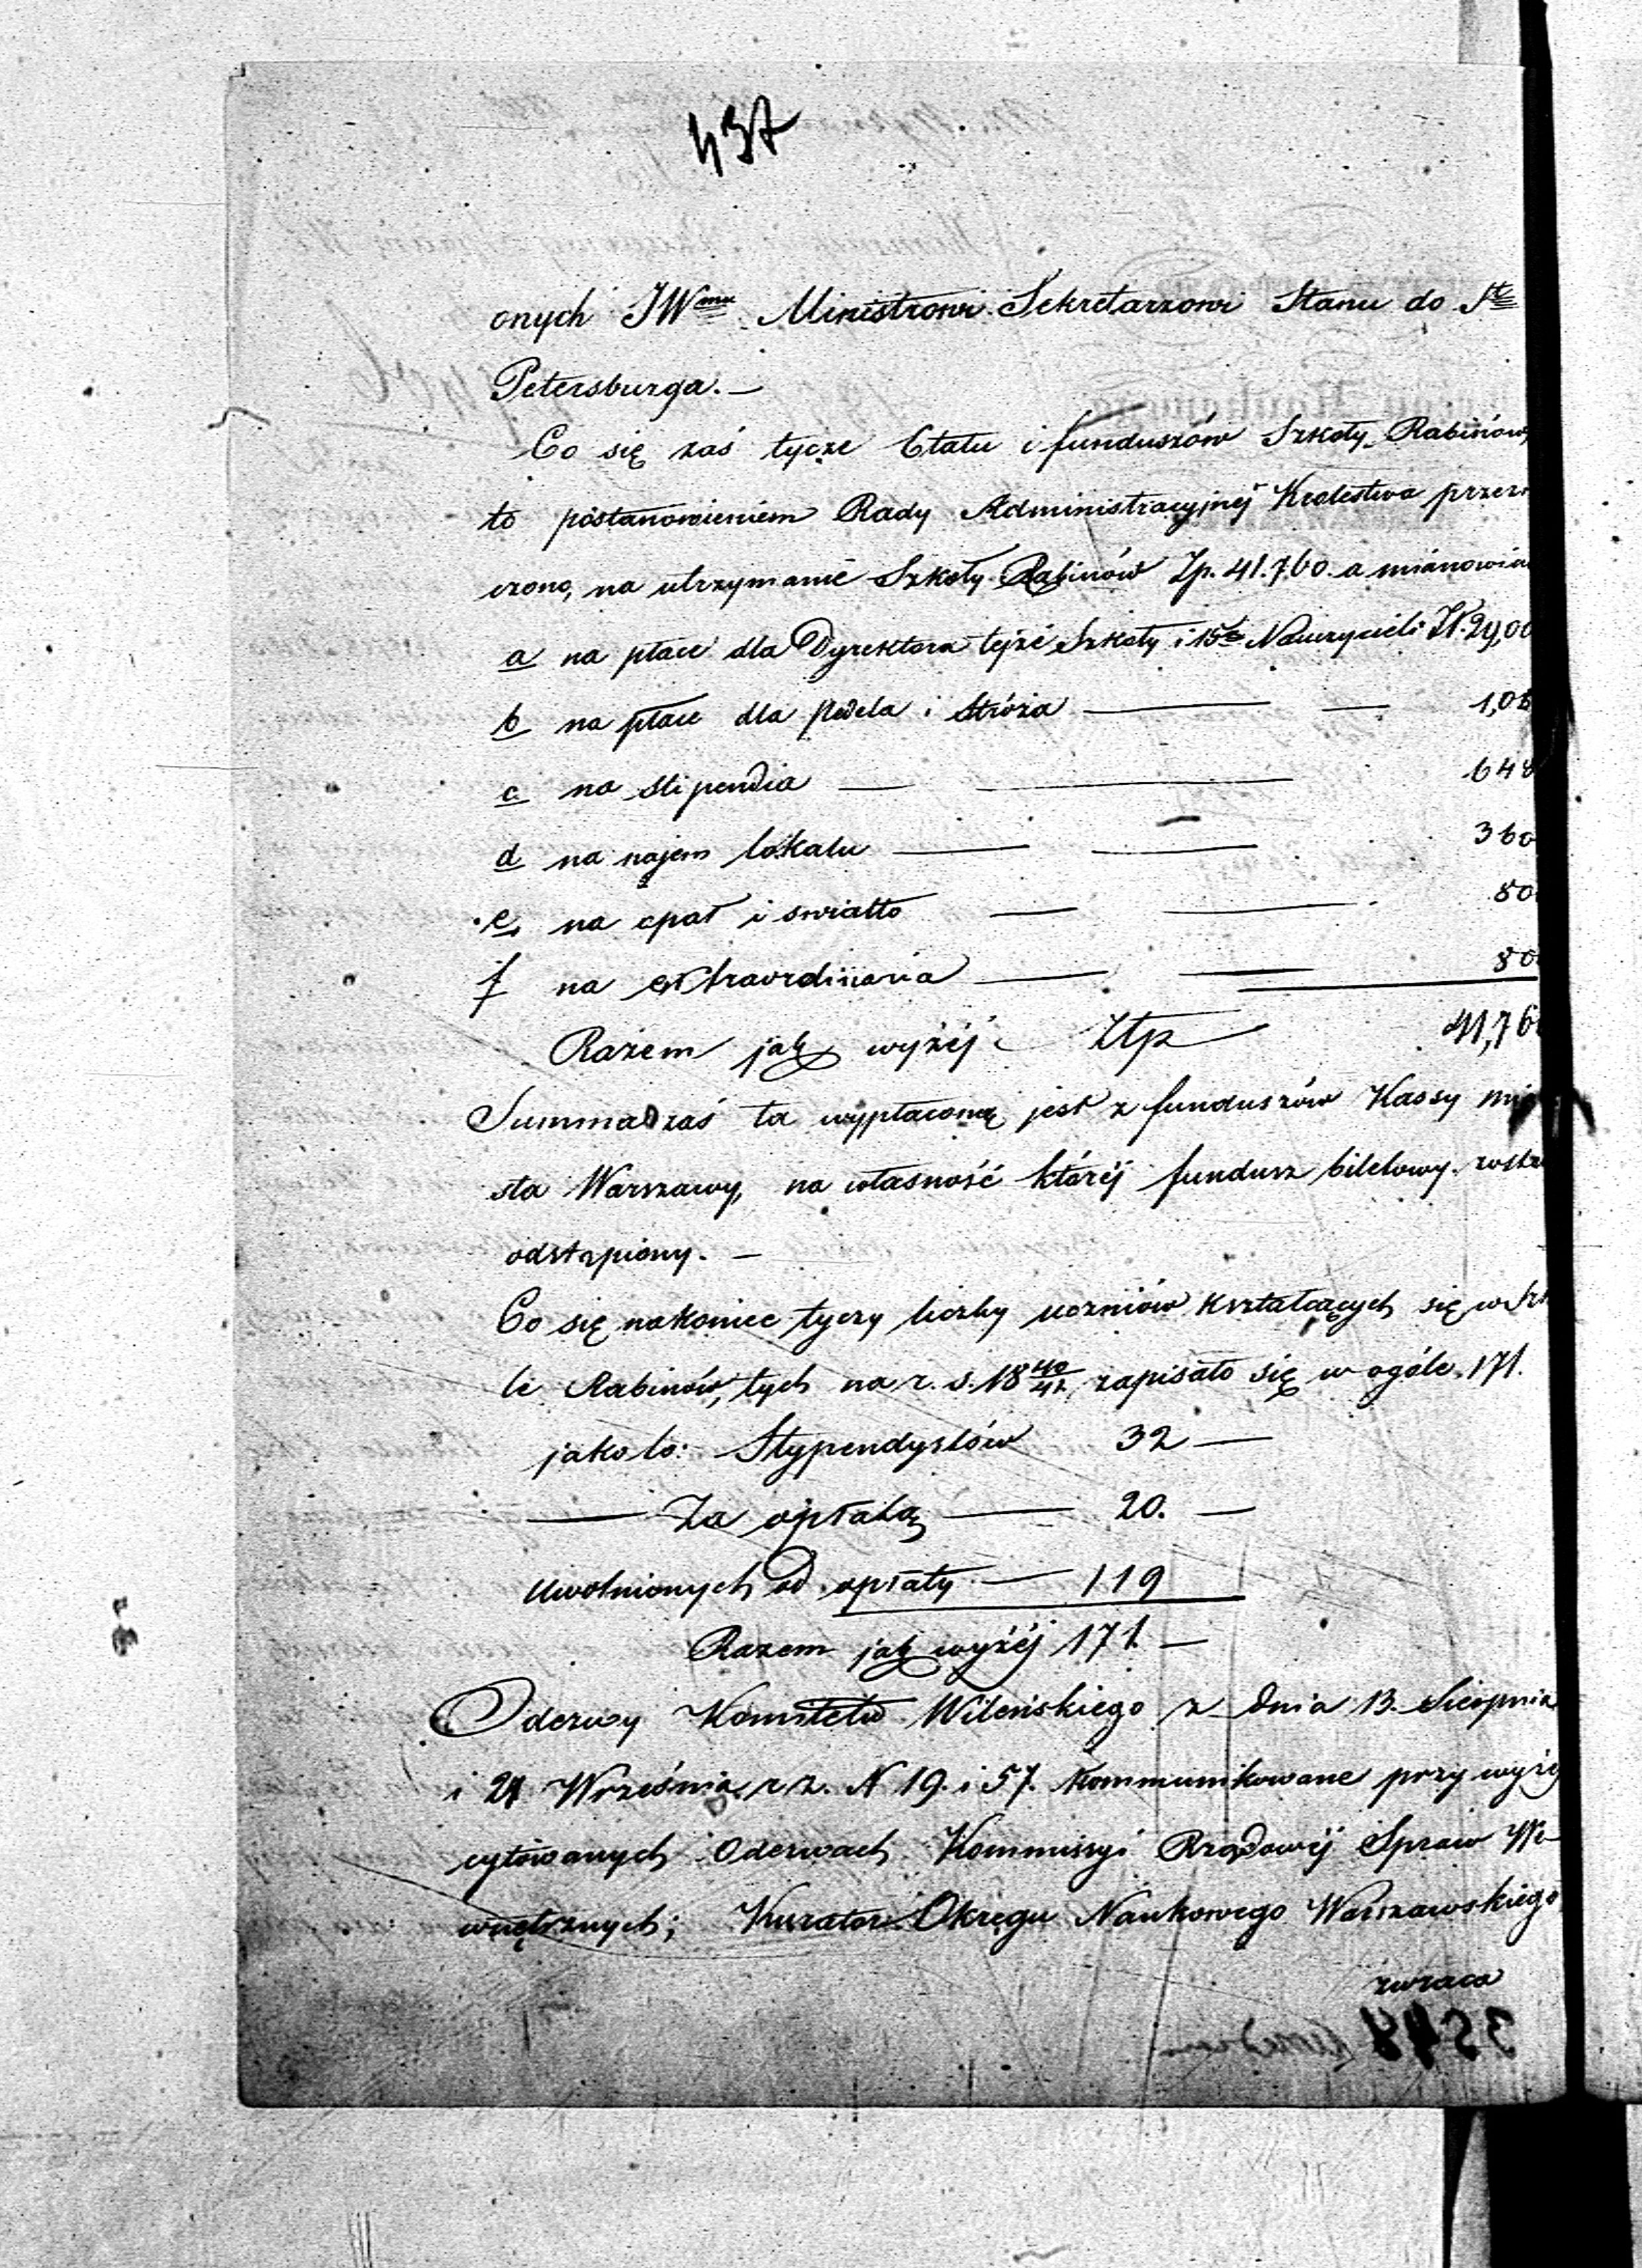 437
onych JWmu Ministrowi Sekretarzowi Stanu do St
Petersburga. —
Co się zaś tycze Etatu i funduszów Szkoły Rabinów
to postanowieniem Rady Administracyjnéj Królestwa przezn
czono, na utrzymanie Szkoły Rabinów Zp. 41.760. a mianowic
a na płace dla Dyrektora tejże Szkoły i 15tu Nauczycieli Zł. 29,00
b na płace dla pedela i stróża — — 1,08
c na stipendia — — 648
d na najem lokalu — — 360
e, na opał i swiatło — — 80
f na extraordinaria — — 80
Razem jak wyżéj Ztp 41,76
Summa zaś ta wypłaconą jest z funduszów Kassy mia
sta Warszawy, na własność któréj fundusz biletowy zosta
odstąpiony. —
Co się nakoniec tyczy liczby uczniów kształcących się w Szk
le Rabinów, tych na r. s. 18 40/41 zapisało się w ogóle 171.
jako to: Stypendystów 32 —
— Za opłatą — 20. —
Uwolnionych od opłaty — 119
Razem jak wyżéj 171. —
Odezwy Komitetu Wileńskiego z dnia 13. Sierpnia
i 21 Września r. z. N 19. i 57. kommunikowane przy wyżé
cytowanych Odezwach Kommissyi Rządowéj Spraw We-
wnętrznych; Kurator Okręgu Naukowego Warszawskiego
zwraca